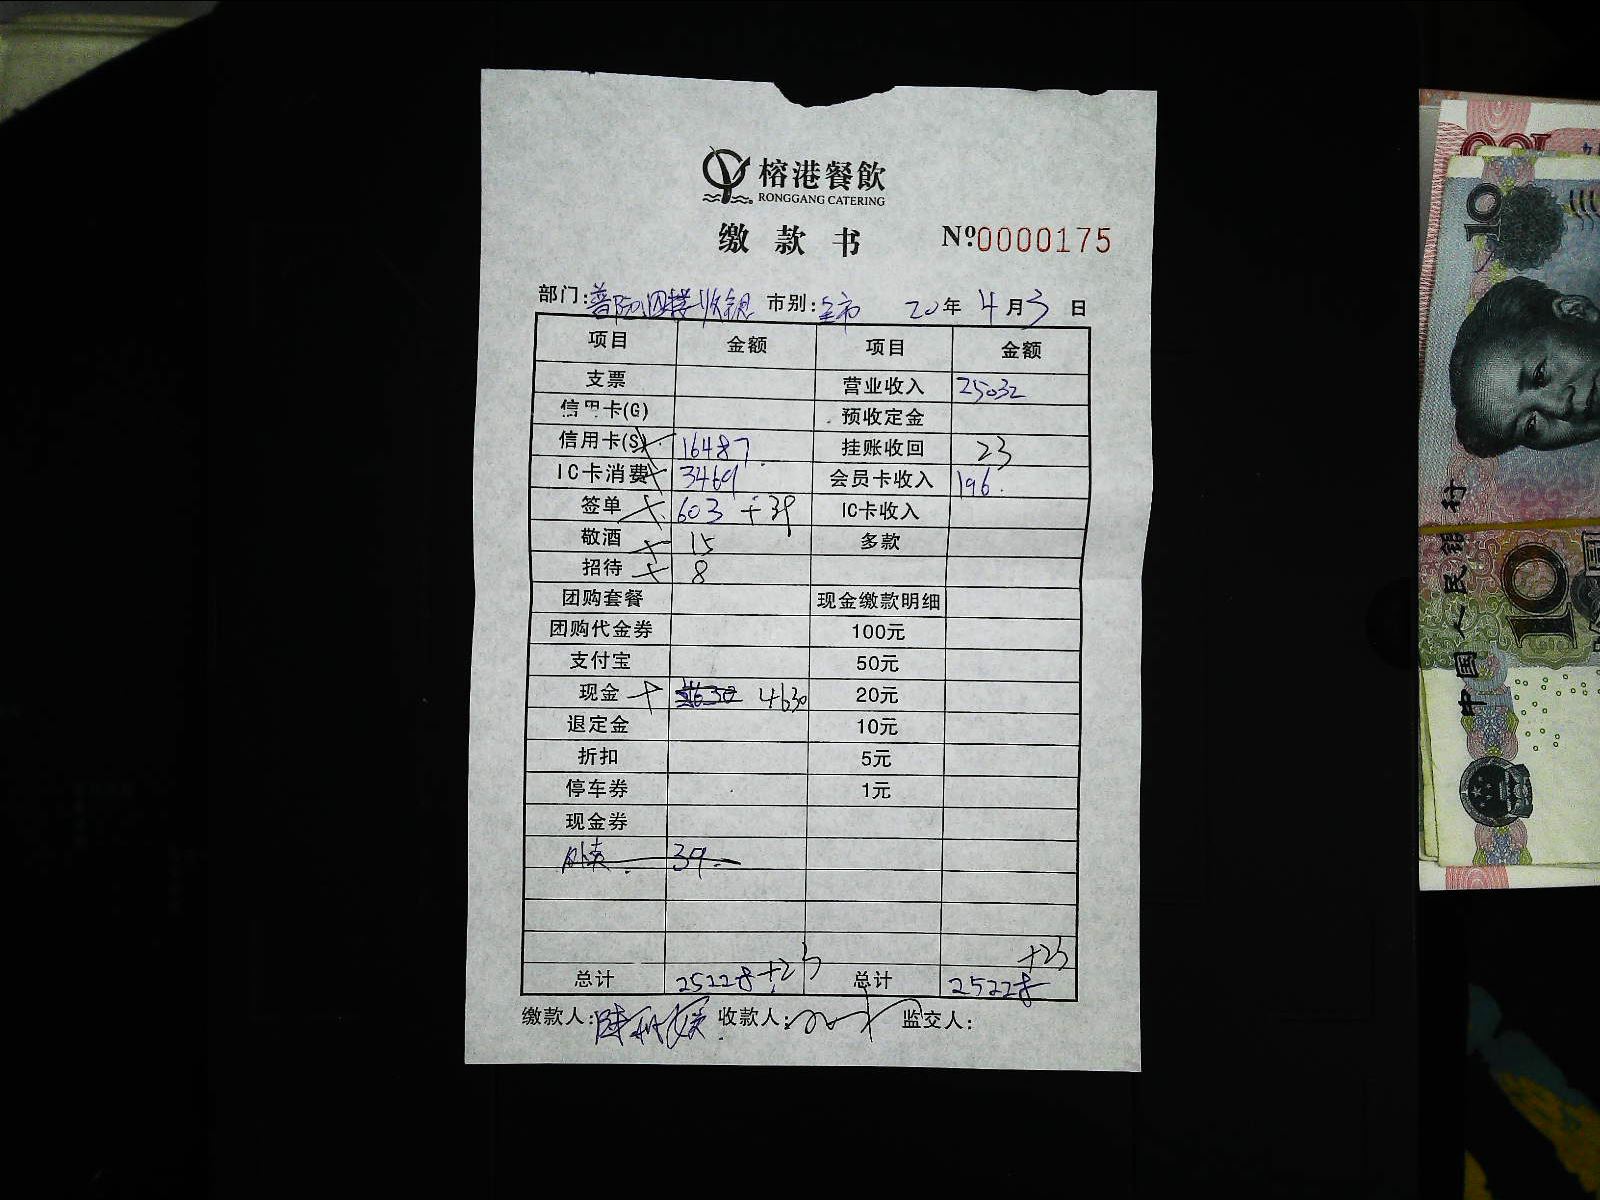 榕港餐飲
RONGGANG CATERING
缴款书 Nº0000175
部门: 普陀四楼收银 市别: 全市 20年4月3日
项目 金额 项目 金额
支票 营业收入 25032
信用卡(G) 预收定金
信用卡(S) 16487 挂账收回 23
IC卡消费 3469 会员卡收入 196.
签单 603 +39 IC卡收入
敬酒 15 多款
招待 8
团购套餐 现金缴款明细
团购代金券 100元
支付宝 50元
现金 4630 20元
退定金 10元
折扣 5元
停车券 1元
现金券
外卖. 39.
+23
总计 25228+23 总计 25228
缴款人: 收款人: 监交人:
10
100
10
中国人民银行